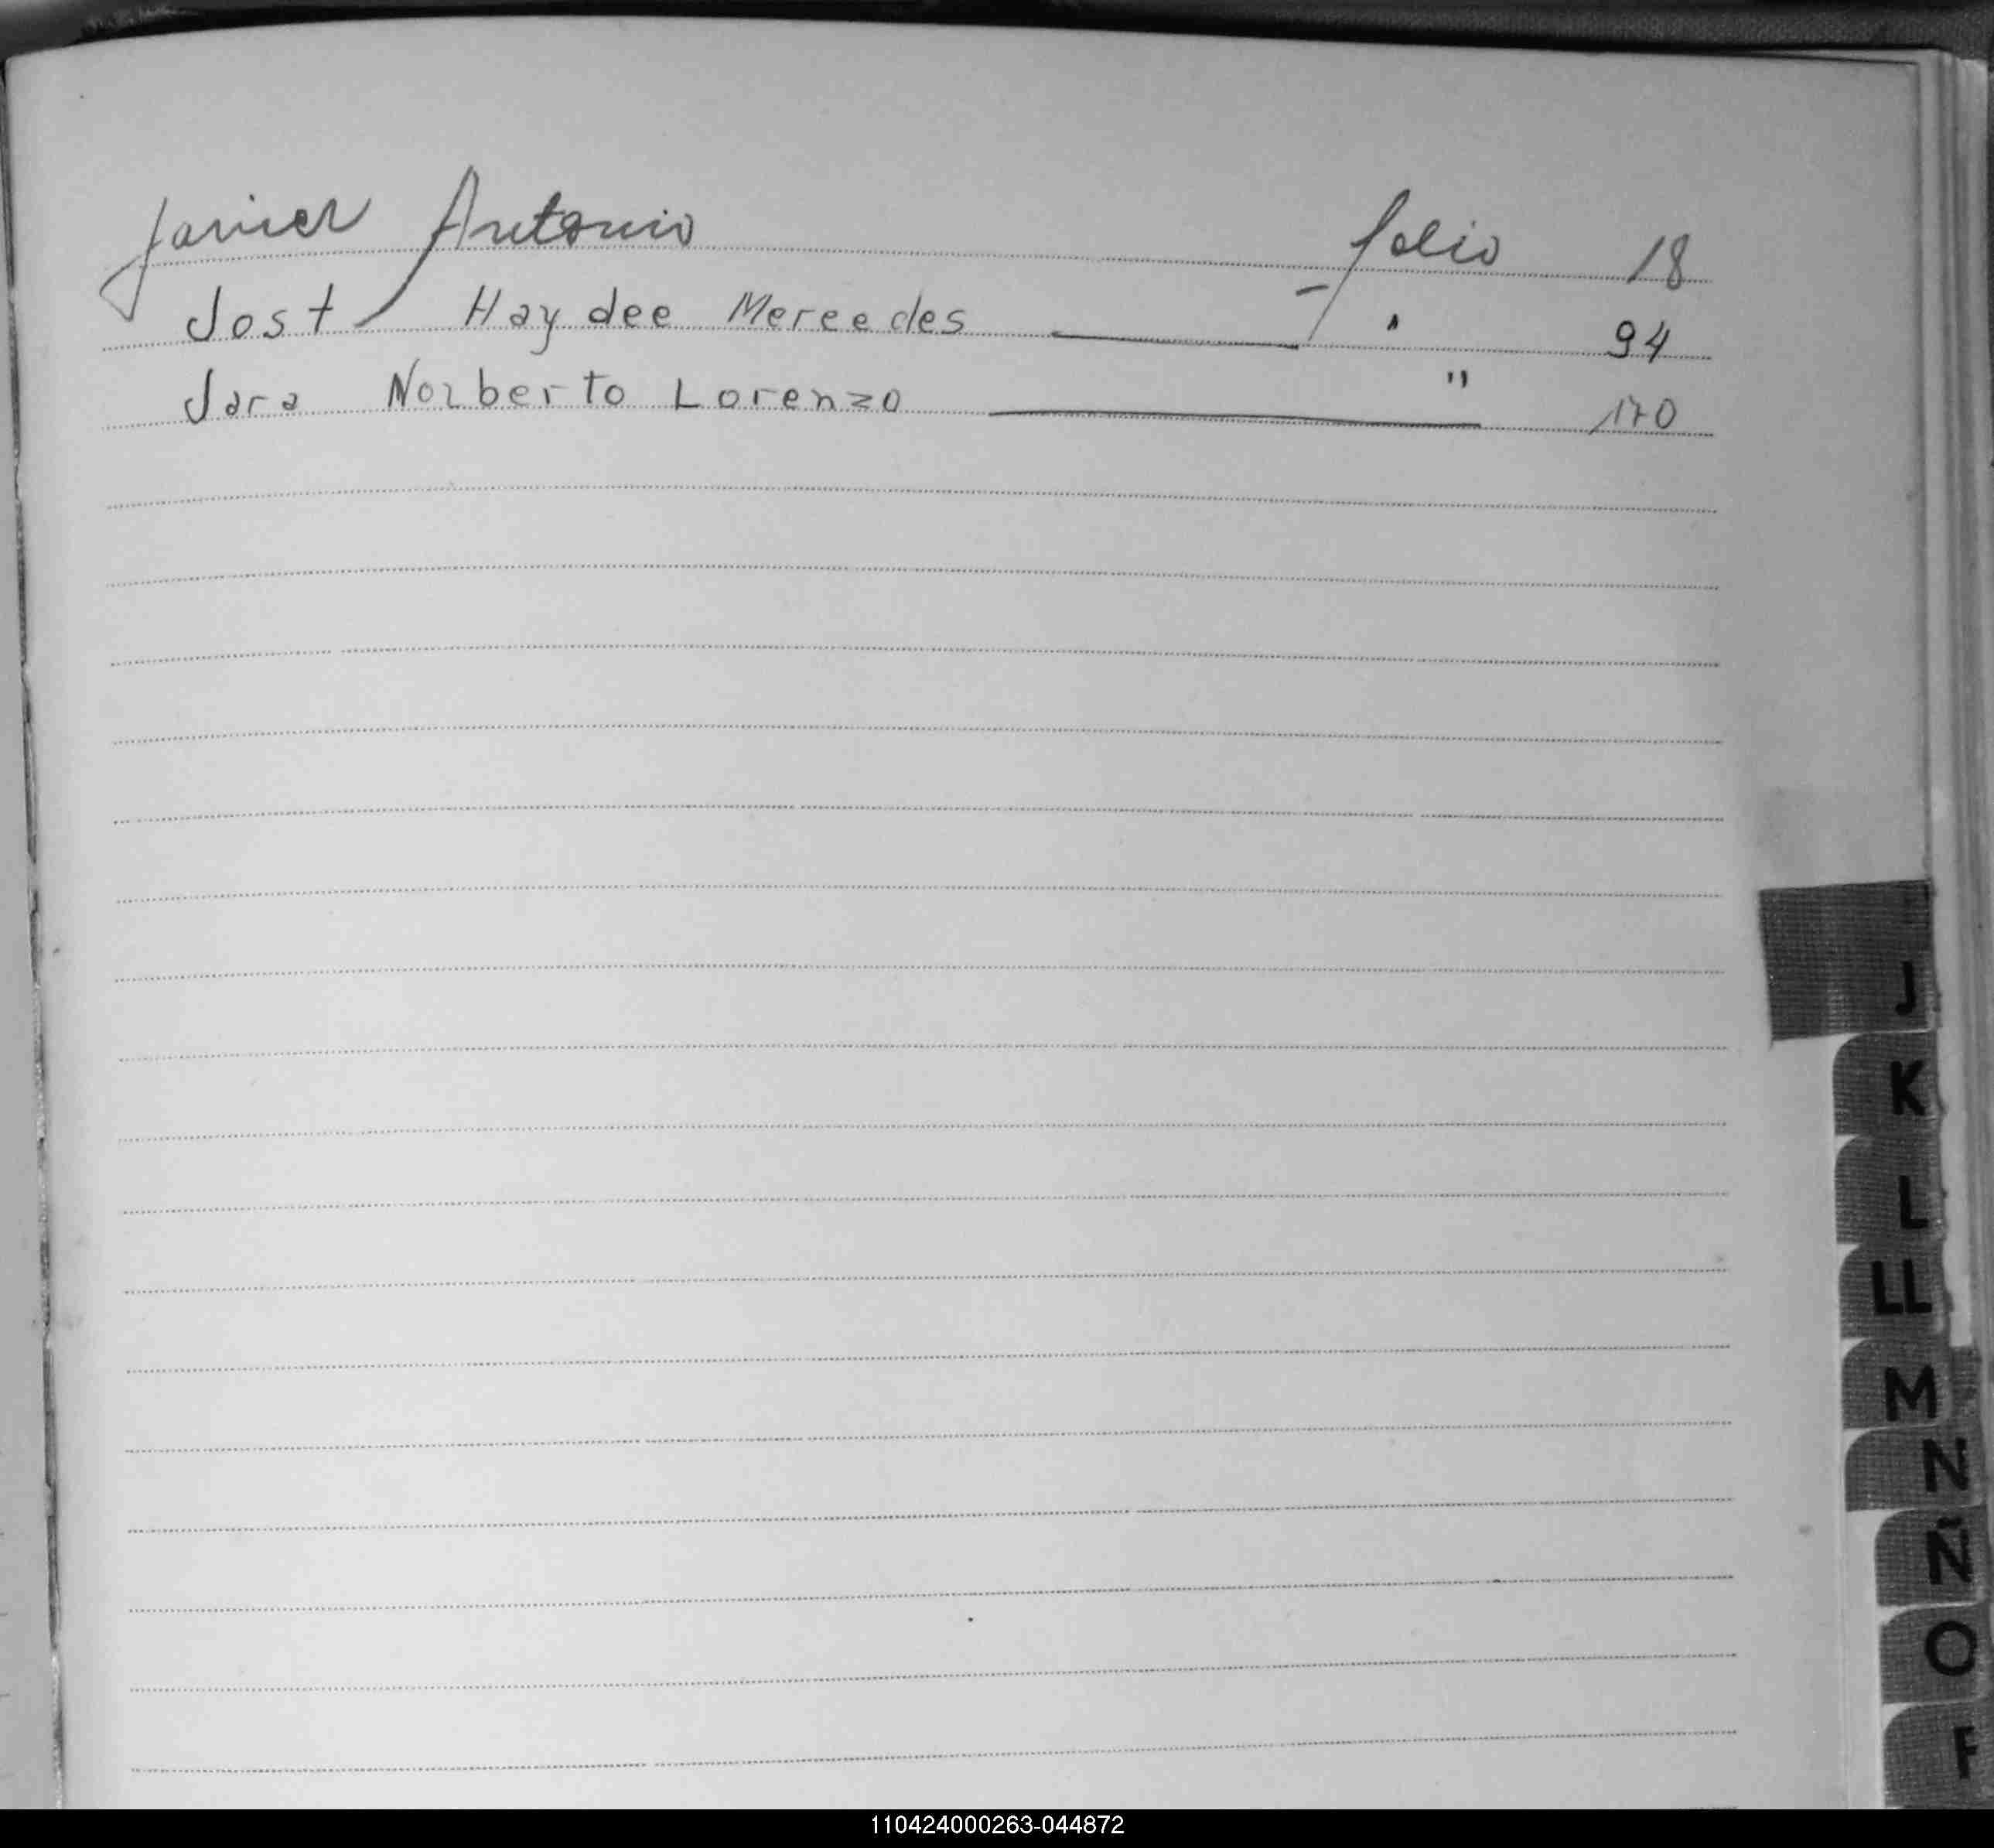 Javier Antonio folio 18
Jost Haydee Mereedes " 94
Jara Norberto Lorenzo " 170
J
K
L
LL
M
N
Ñ
O
110424000263-044872